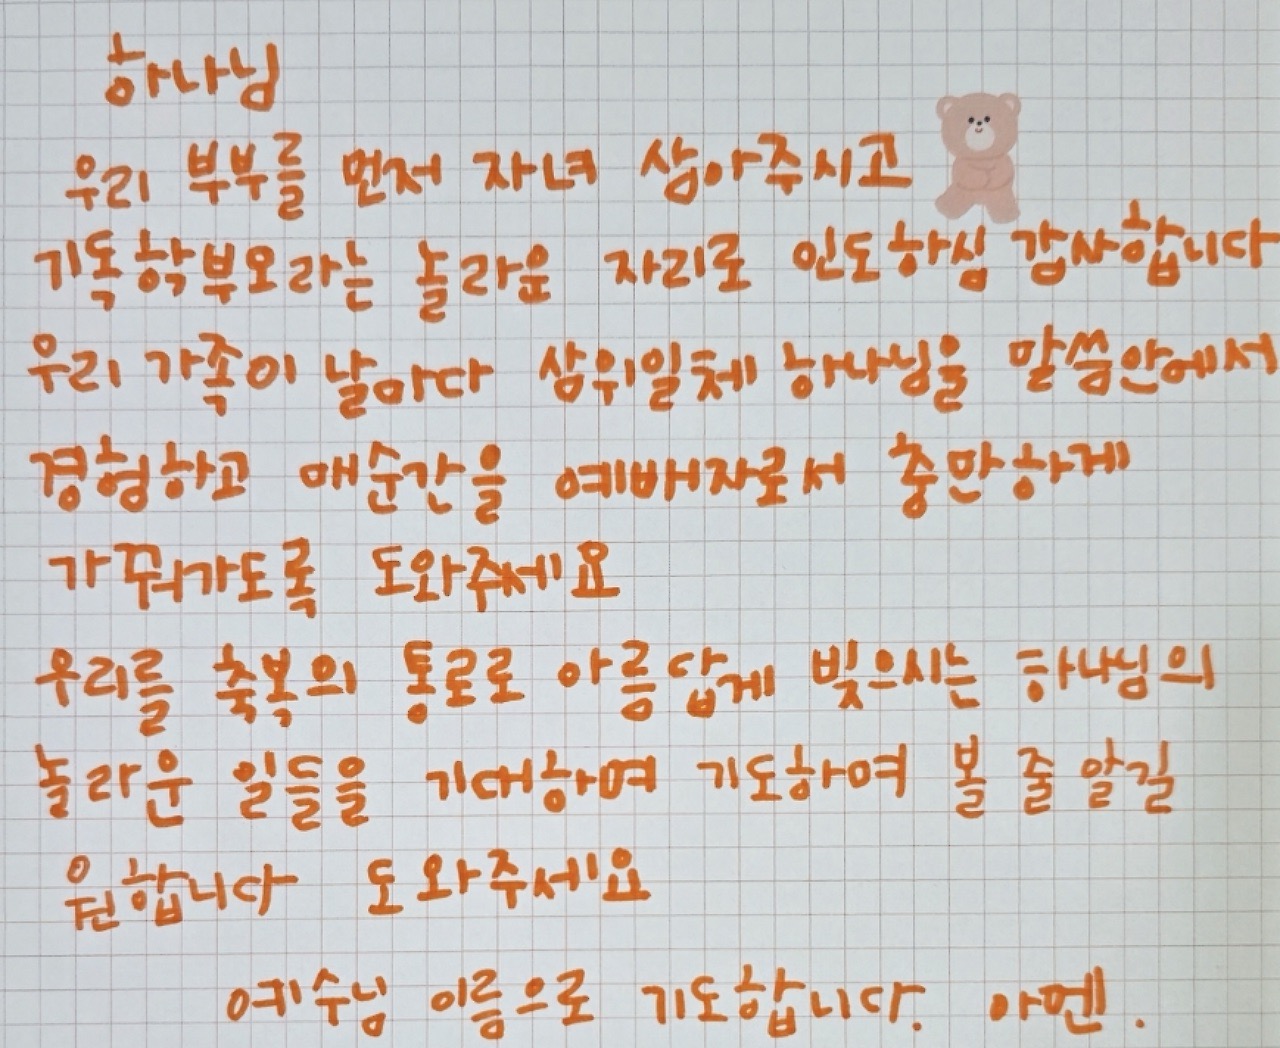 하나님
우리 부부를 먼저 자녀 삼아주시고
기독학부모라는 놀라운 자리로 인도하심 감사합니다
우리 가족이 날마다 삼위일체 하나님을 말씀안에서
경험하고 매순간을 예배자로서 충만하게
가꿔가도록 도와주세요
우리를 축복의 통로로 아름답게 빚으시는 하나님의
놀라운 일들을 기대하며 기도하며 볼 줄 알길
원합니다 도와주세요
예수님 이름으로 기도합니다. 아멘.